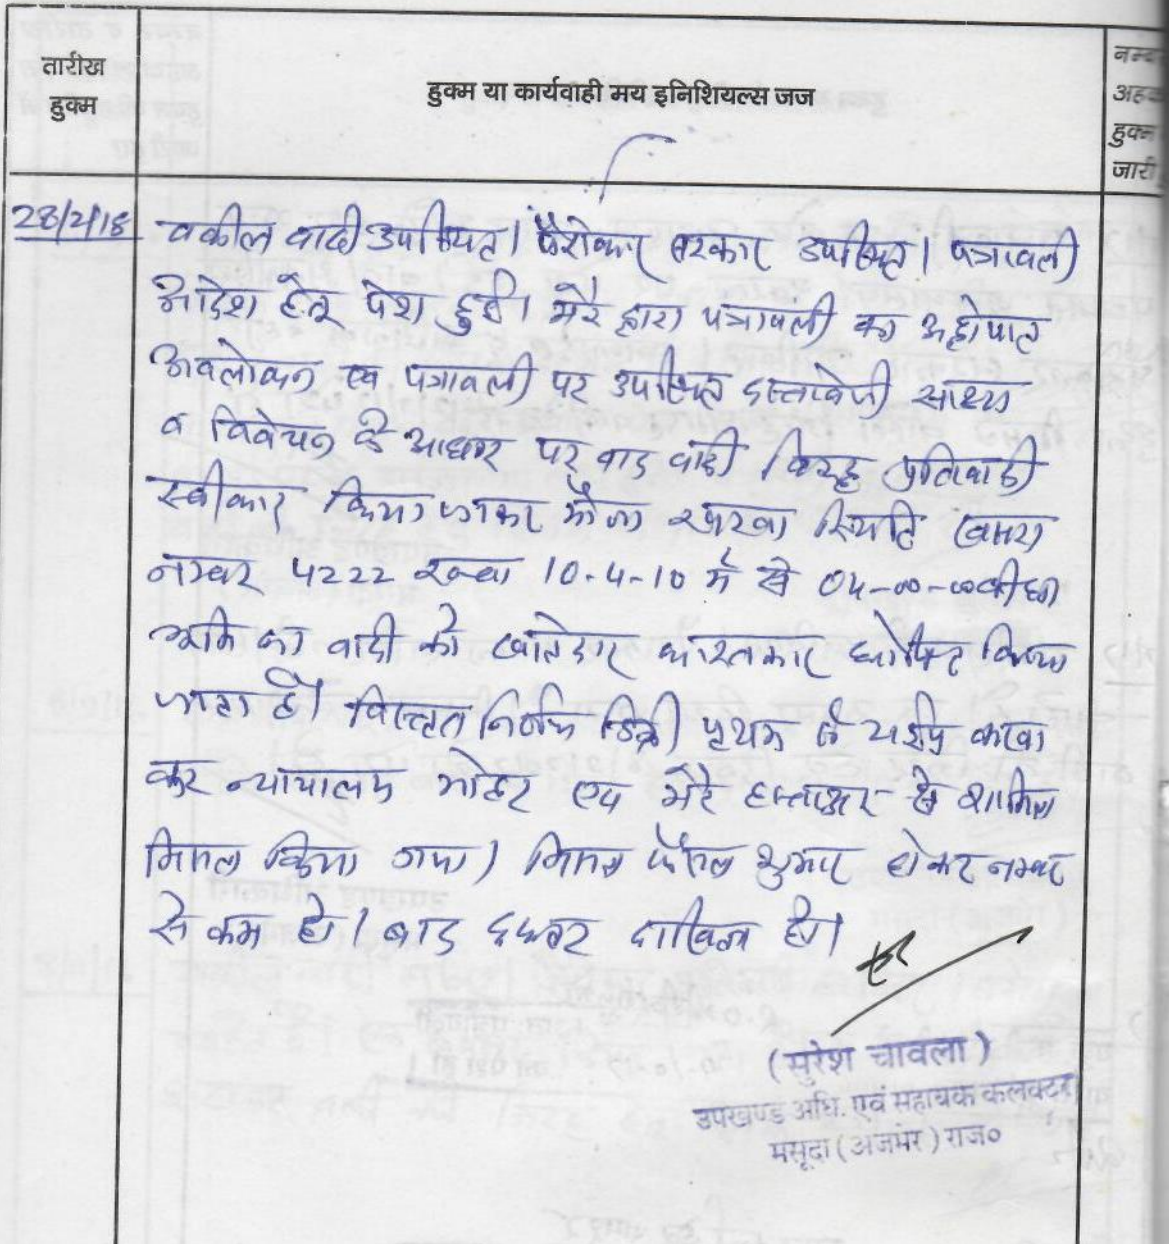 तारीख
हुक्म
हुक्म या कार्यवाही मय इनिशियल्स जज
नम्ब
अहक
हुक्म
जारी
28/2/18
वकील वादी उपस्थित। पैरोकार सरकार उपस्थित। पत्रावली
आदेश हेतु पेश हुई। मेरे द्वारा पत्रावली का अद्दोपान्त
अवलोकन एवं पत्रावली पर उपस्थित दस्तावेजी साक्ष्य
व विवेचन के आधार पर वाद वादी विरुद्ध प्रतिवादी
स्वीकार किया जाकर मौजा खरवा स्थिति खसरा
नम्बर 4222 रकबा 10-4-10 में से 04-00-00 बीघा
भूमि का वादी को खातेदार काश्तकार घोषित किया
जाता है। विस्तृत निर्णय डिक्री पृथक से
कर न्यायालय मोहर एवं मेरे हस्ताक्षर से शामिल
मिसल किया गया। मिसल फैसल शुमार होकर नम्बर
से कम हो। बाद दफ्तर दाखिल हो।
(सुरेश चावला)
उपखण्ड अधि. एवं सहायक कलक्टर
मसूदा (अजमेर) राज०